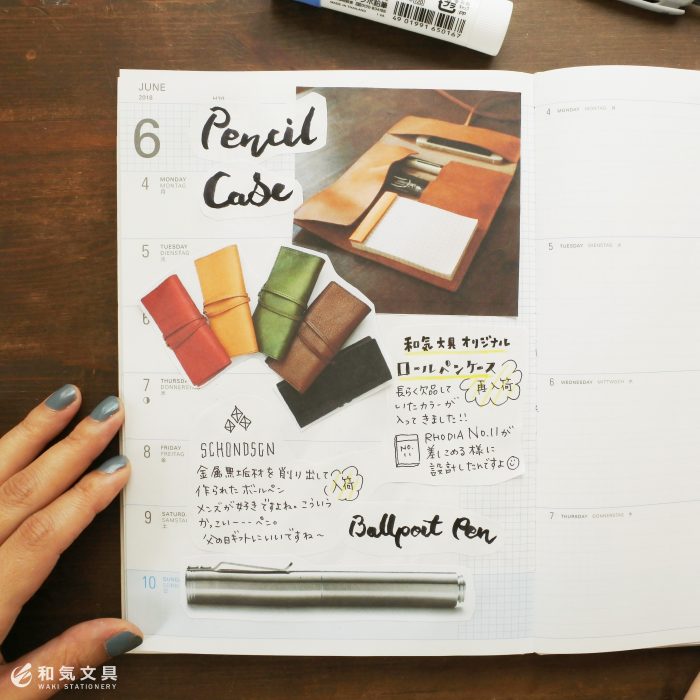 4901991650167
プラ
JUNE
2018
6
Pencil
Case
4 MONDAY
MONTAG
月
5 TUESDAY
DIENSTAG
火
6
7 THURSD
DONNERS
8 FRIDAY
FREITAG
金
9 SATURD
SAMSTA
土
10
和気文具オリジナル
ロールペンケース
再入荷
長らく欠品して
いたカラーが
入ってきました!!
No.
11
RHODIA No.11が
差しこめる様に
設計したんですよ
SCHONDSGN
金属無垢材を削り出して
作られたボールペン
入荷
メンズが好きですよね。こういう
かっこいーーーペン。
父の日ギフトにいいですね〜
Ballpoat Pen
4 MONDAY MONTAG 月
5 TUESDAY DIENSTAG 火
6 WEDNESDAY MITTWOCH 水
7 THURSDAY DONNERSTAG 木
和気文具
WAKI STATIONERY